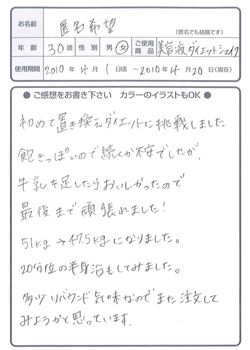 お名前 匿名希望
(匿名でも結構です)
年齢 30歳 性別 男・女 ご使用商品 美容液ダイエットシェイク
使用期間 2010年4月1日頃 〜 2010年4月20日(現在)
● ご感想をお書き下さい カラーのイラストもOK ●
初めて置き換えダイエットに挑戦しました
飽きっぽいので続くか不安でしたが、
牛乳を足したりおいしかったので
最後まで頑張れました!
51kg→47.5kgになりました。
20分位の半身浴もしてみました。
リバウンド気味なのでまた注文して
みようかと思っています。